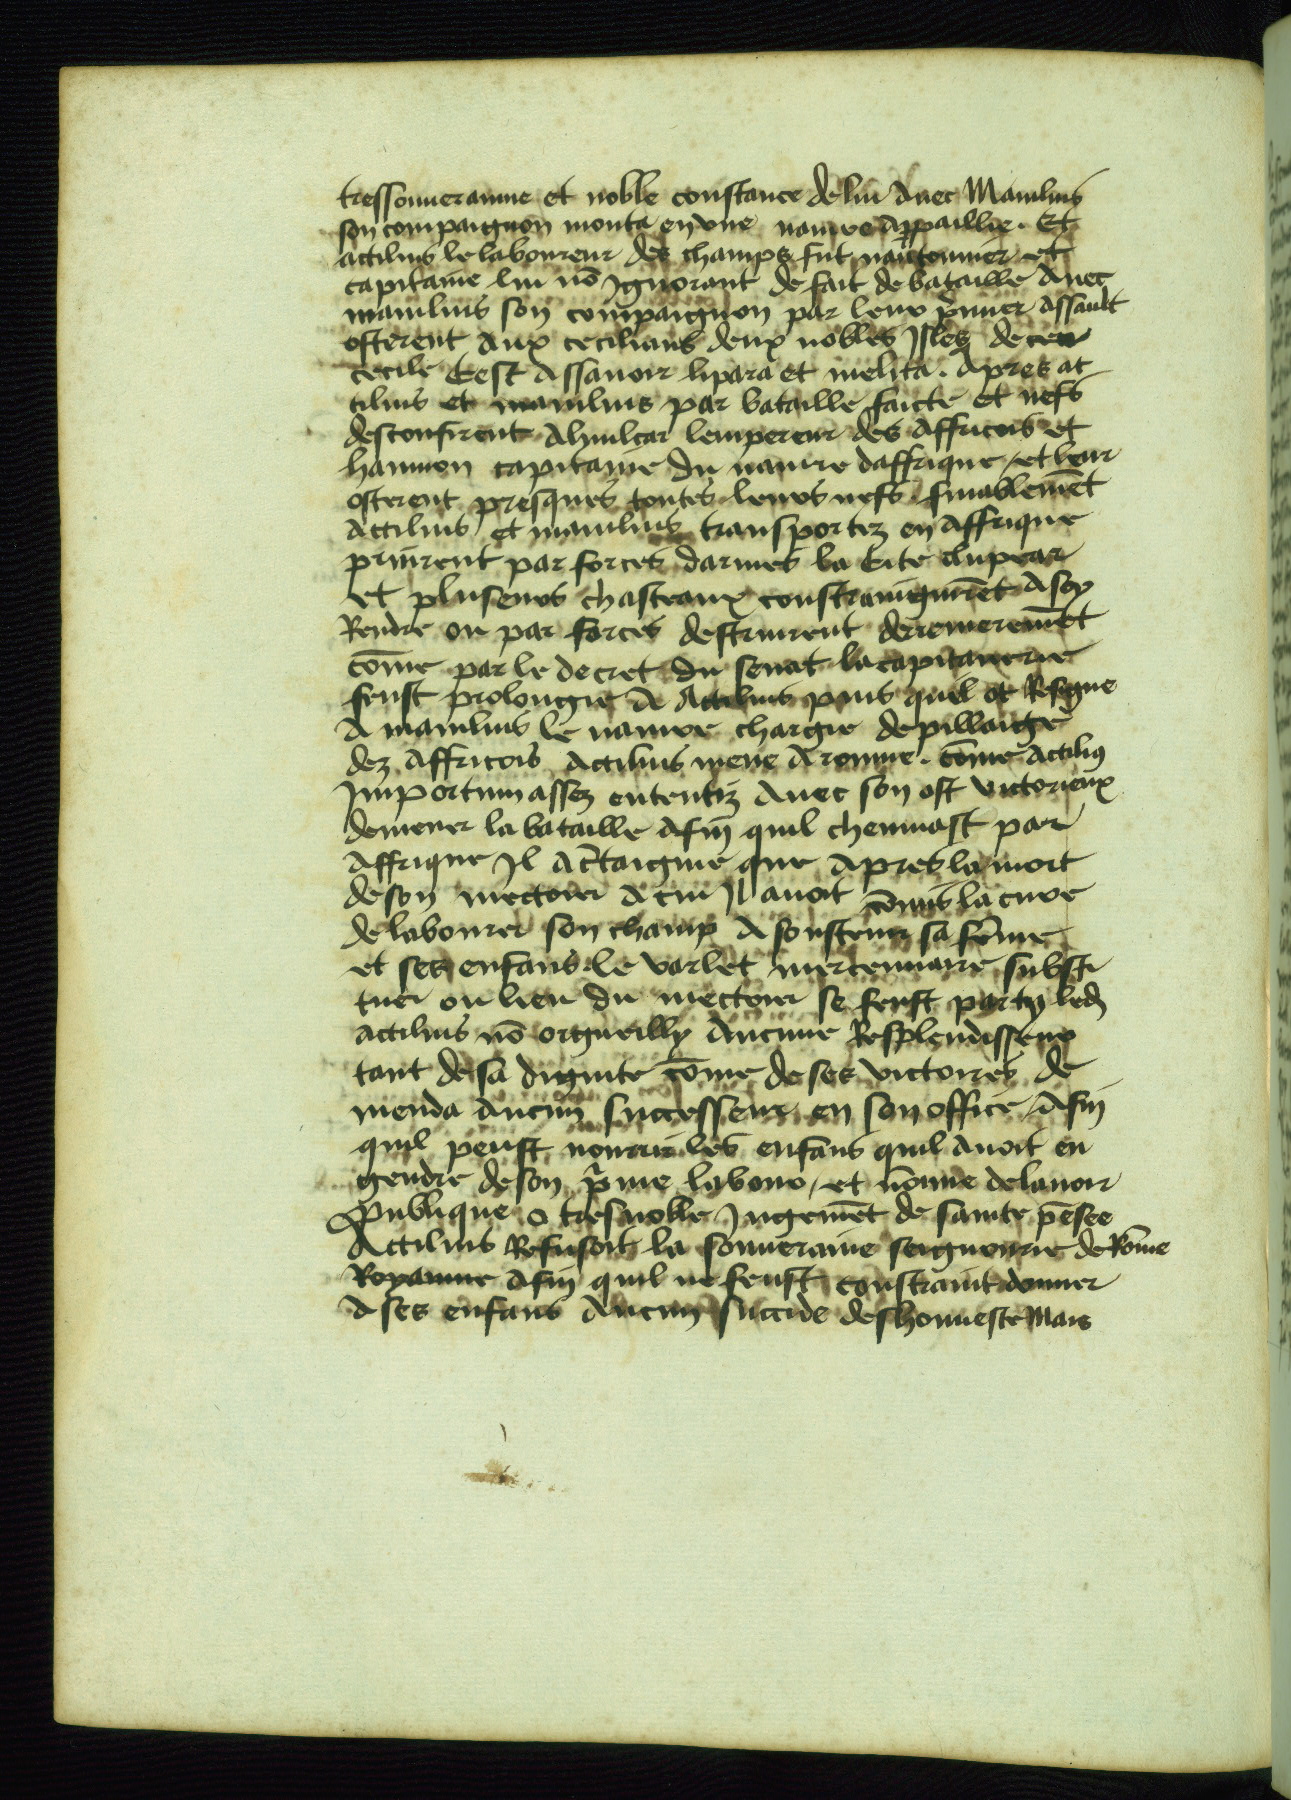 tressouueranne et noble constance de lui Auec Manlius
son compaignon monta en vne nauire Appaillie . Et
actilius le laboureur des champs fut nautonnier et
capitaine lui nō Ignorant de fait de bataille Auec
manlius son compaignon par leur p̄mier assault
osterent Aux cecilians deux nobles Isles de
cecile Cest Assauoir lipara et melita . Apres at
tilius et manlius par bataille faicte et nefs
desconfirent Ahmilcar lempereur des Affricois et
hannon capitaine du nauire daffrique / et leur
osterent presques toutes leurs nefs . finablemēt
Actilius et manlius transportez en Affrique
prinrent par forces darmes la Cite clupear
et pluseurs chasteaux constraingnirēt A soy
Rendre ou par forces destruirent derremeremēt
cōme par le decret du senat la capitanerie
feust prolongie A Actilius puis quil ot Resigne
A manlius le nauire chargie de pillaige
dez Affricois Actilius mene A romme . cōme Actilius
Importum assez ententiz Auec son ost victorieux
demener la bataille Afin quil cheminast par
Affrique Il Actaigme que Apres la mort
de son mectoier A cui Il auoit cōmis la cure
de labourer son champ A soustenir sa fēme
et ses enfans . le varlet mercennaire substi
tuer ou lieu du mectoier se feust party led
actilius nō orgueilly Aucune Resplendisseur
tant de sa dignite cōme de ses victoires de
menda Aucun successeur en son office / Afin
quil peust nourrir les enfans quil Auoit en
gendre de son p̄me labour / et nōme de lauoir
Publique O tresnoble Iugemēt de sainte pēsee
Actilius Refusoit la souueraine seigneurie de Rōme
Royaume Afin quil ne feust constraint donner
A ses enfans Aucun succide deshonneste Mais